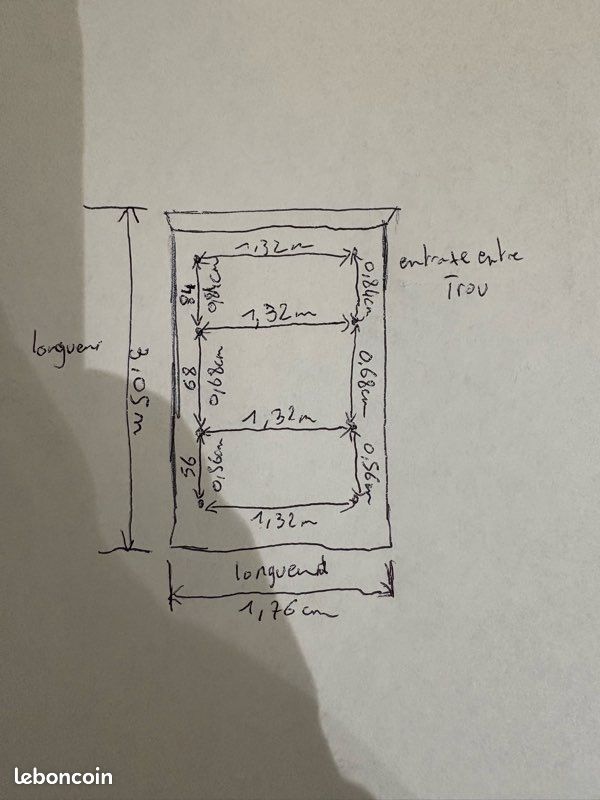 1,32m
entraxe entre
Trou
84
0,84cm
0,84cm
1,32m
longueur
3,05m
68
0,68cm
0,68cm
1,32m
56
0,56cm
0,56cm
1,32m
longueur
1,76cm
leboncoin